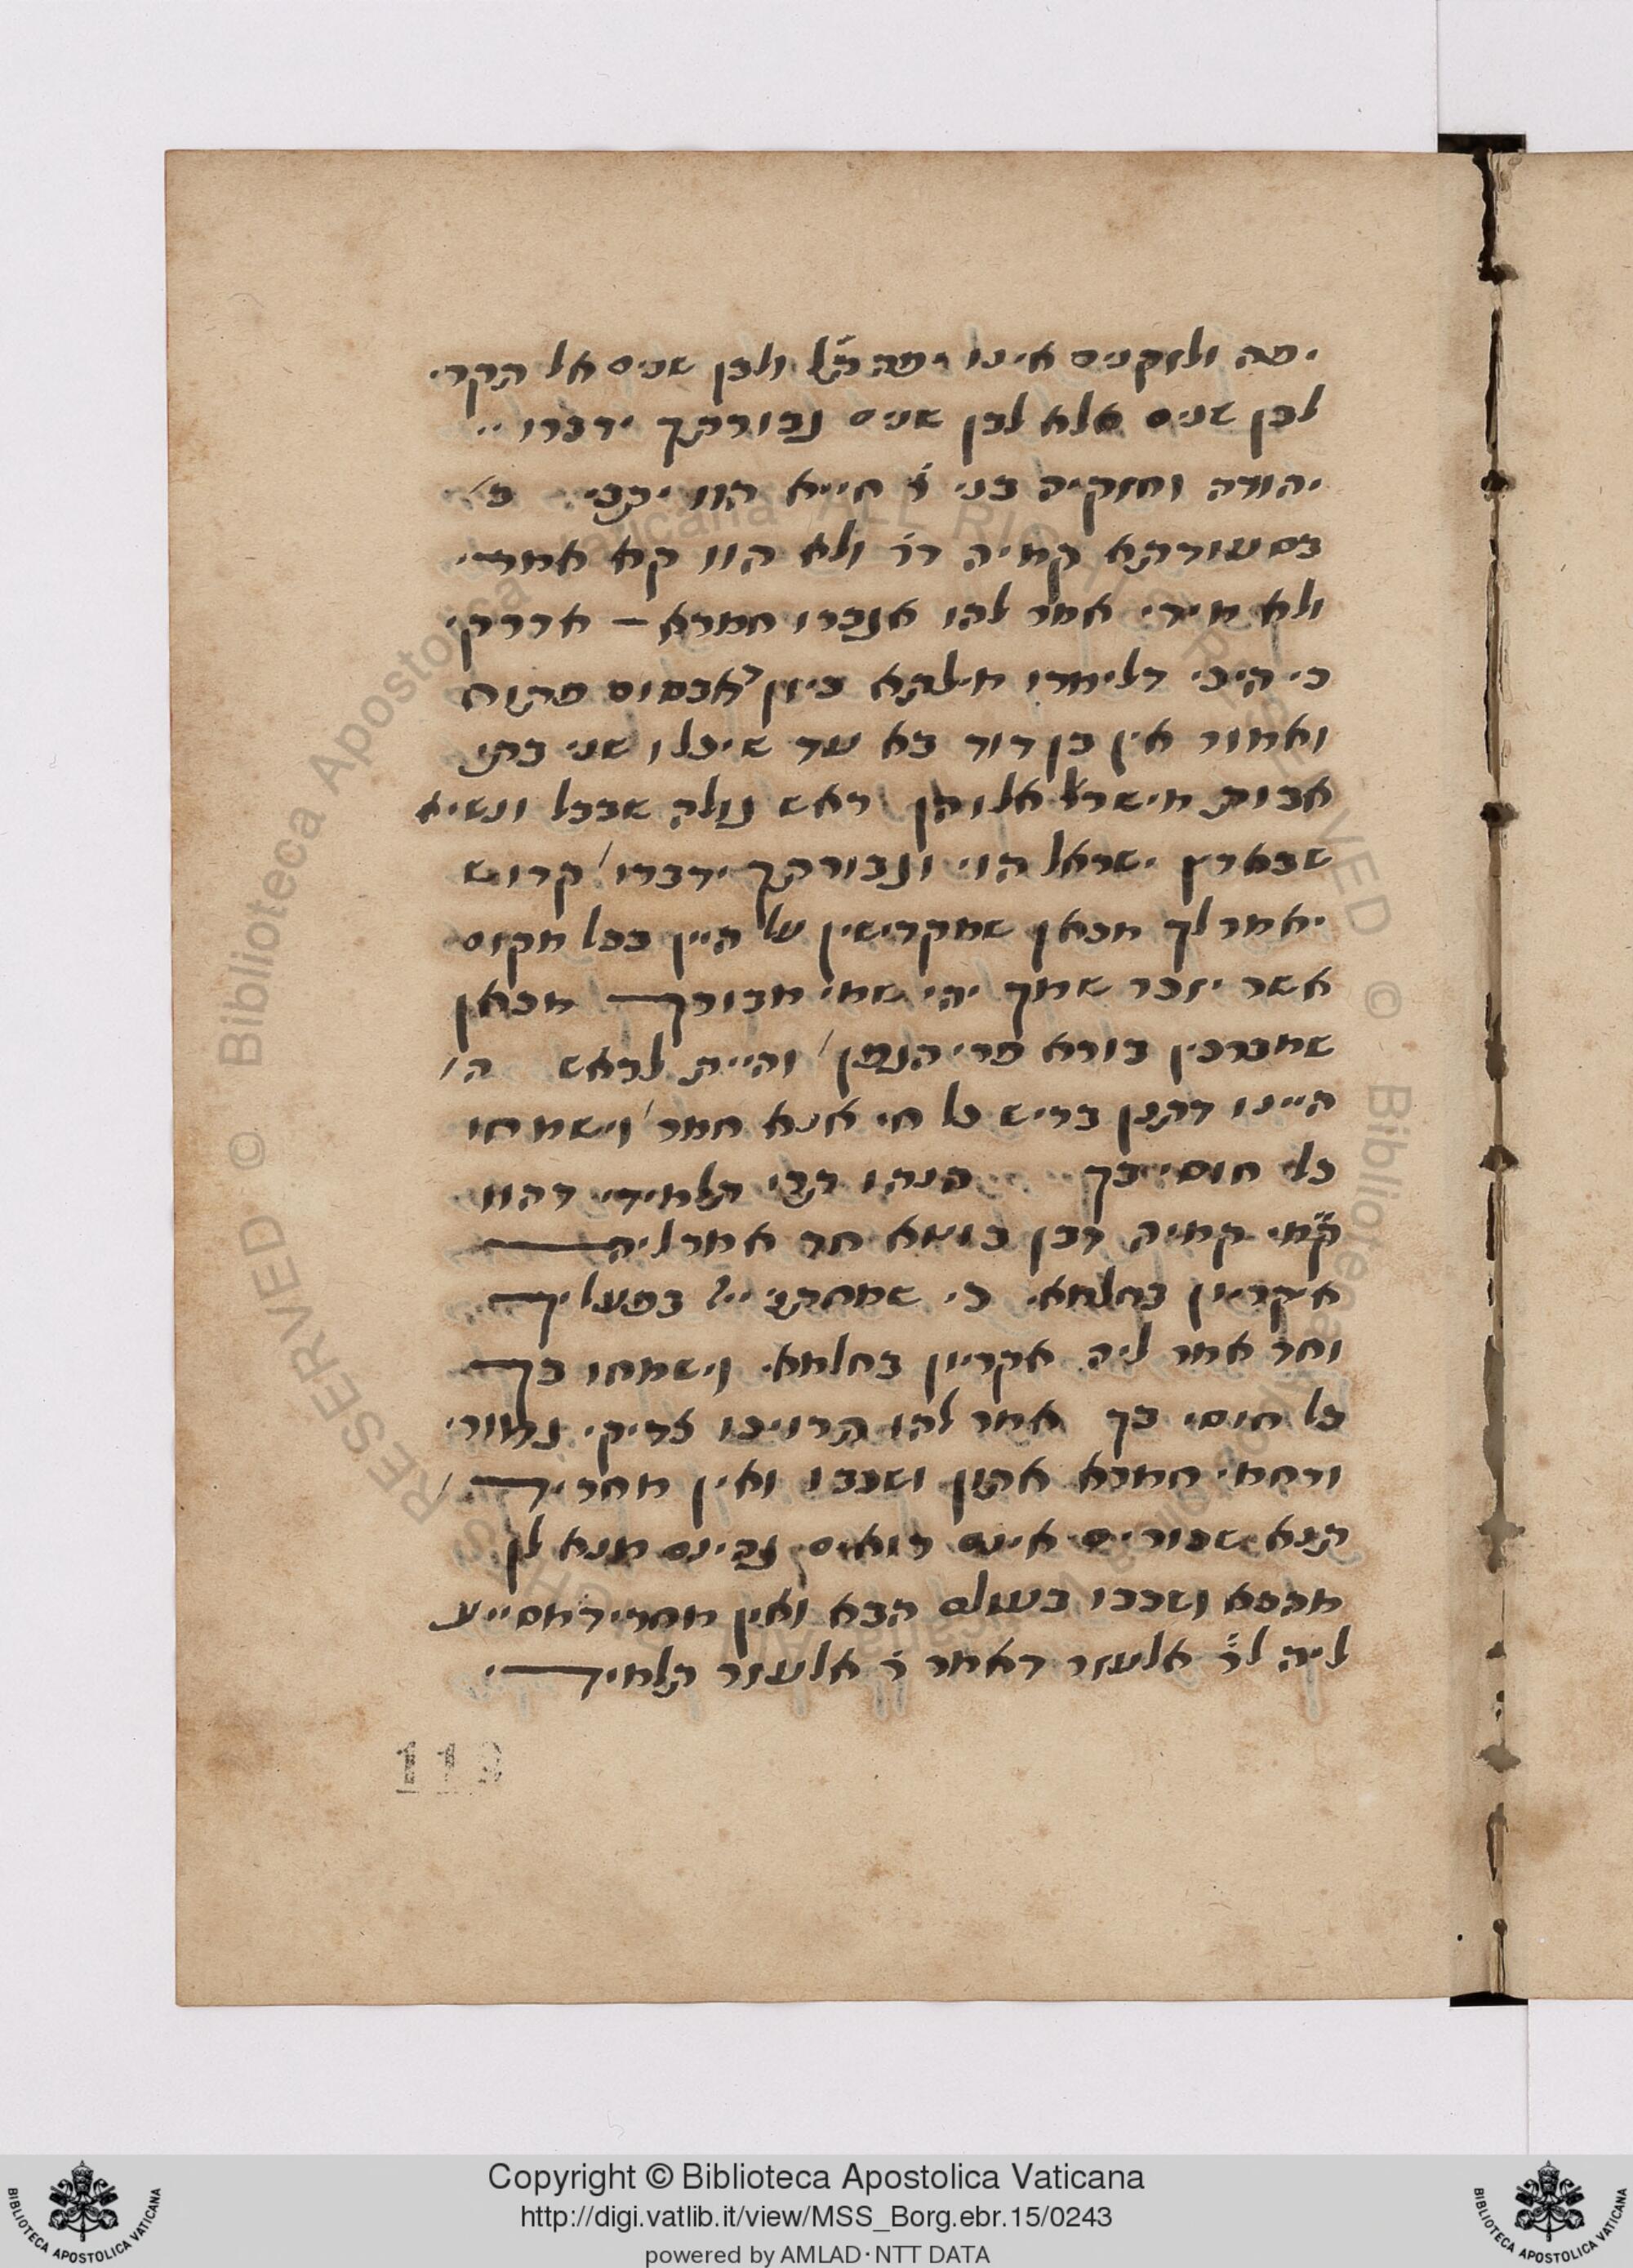 יפה ולזקנים אינו יפה ת״ל ולבן שנים אל תקרי
לבן שנים אלא לבן שנים גבורתך ידברו
יהודה וחזקיה בני ר׳ חייא הוו יתבי
בסעודתא קמיה דר׳ ולא הוו קא אמרי
ולא מידי אמר להו אגברו חמרא אדרדקי
כי היכי דלימרו מילתא כיון דאבסום פתחו
ואמור אין בן דוד בא עד שיכלו שני בתי
אבות מישראל אלו הן ראש גולה שבבל ונשיא
שבארץ ישראל הוי וגבורתך ידברו קדוש
יאמר לך מכאן שמקדישין על היין בכל מקום
אשר יזכר שמך יהי שמי מבורך מכאן
שמברכין בורא פרי הגפן והיית לראש ה׳
היינו דתנן בריש כל חי אנא חמר וישמחו
כל חוסי בך הנהו תרי תלמידי דהוו
קמיה רבן חד אמר ליה
איקריון בחלמאי כי שמחתני ייי בפעליך
וחד אמר ליה אקריון בחלמאי וישמחו בך
כל חוסי בך אמר להו תרויכו צדיקי גמורי
ורחמי חמרא אתון ושכבו ואין מחריד
תנא שכורים אינם רואים גהינם מנא לן
מהכא ושכבו בעולם הבא ואין מחריד מסייע
ליה לר׳ אלעזר דאמר ר׳ אלעזר תלמידי
119
Copyright © Biblioteca Apostolica Vaticana
http://digi.vatlib.it/view/MSS_Borg.ebr.15/0243
powered by AMLAD · NTT DATA
BIBLIOTECA APOSTOLICA VATICANA
BIBLIOTECA APOSTOLICA VATICANA